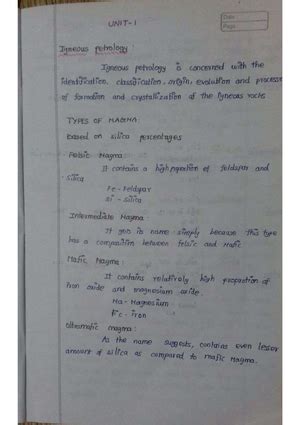 UNIT-1
Date
Page
Igneous petrology
Igneous petrology is concerned with the
identification, classification, origin, evolution and process
of formation and crystallization of the igneous rocks
TYPES OF MAGMA:
based on silica percentages
Felsic Magma
It contains a high of feldspar and
silica
Fe - Feldspar
Si - Silica
Intermediate Magma
It gets its name simply because this type
has a composition between felsic and Mafic
Mafic Magma:
It contains relatively high proportion of
iron oxide and magnesium oxide.
Ma - Magnesium
Fc - iron
Ultramafic magma:
As the name suggests, contains even lesser
amount of silica as compared to mafic Magma.